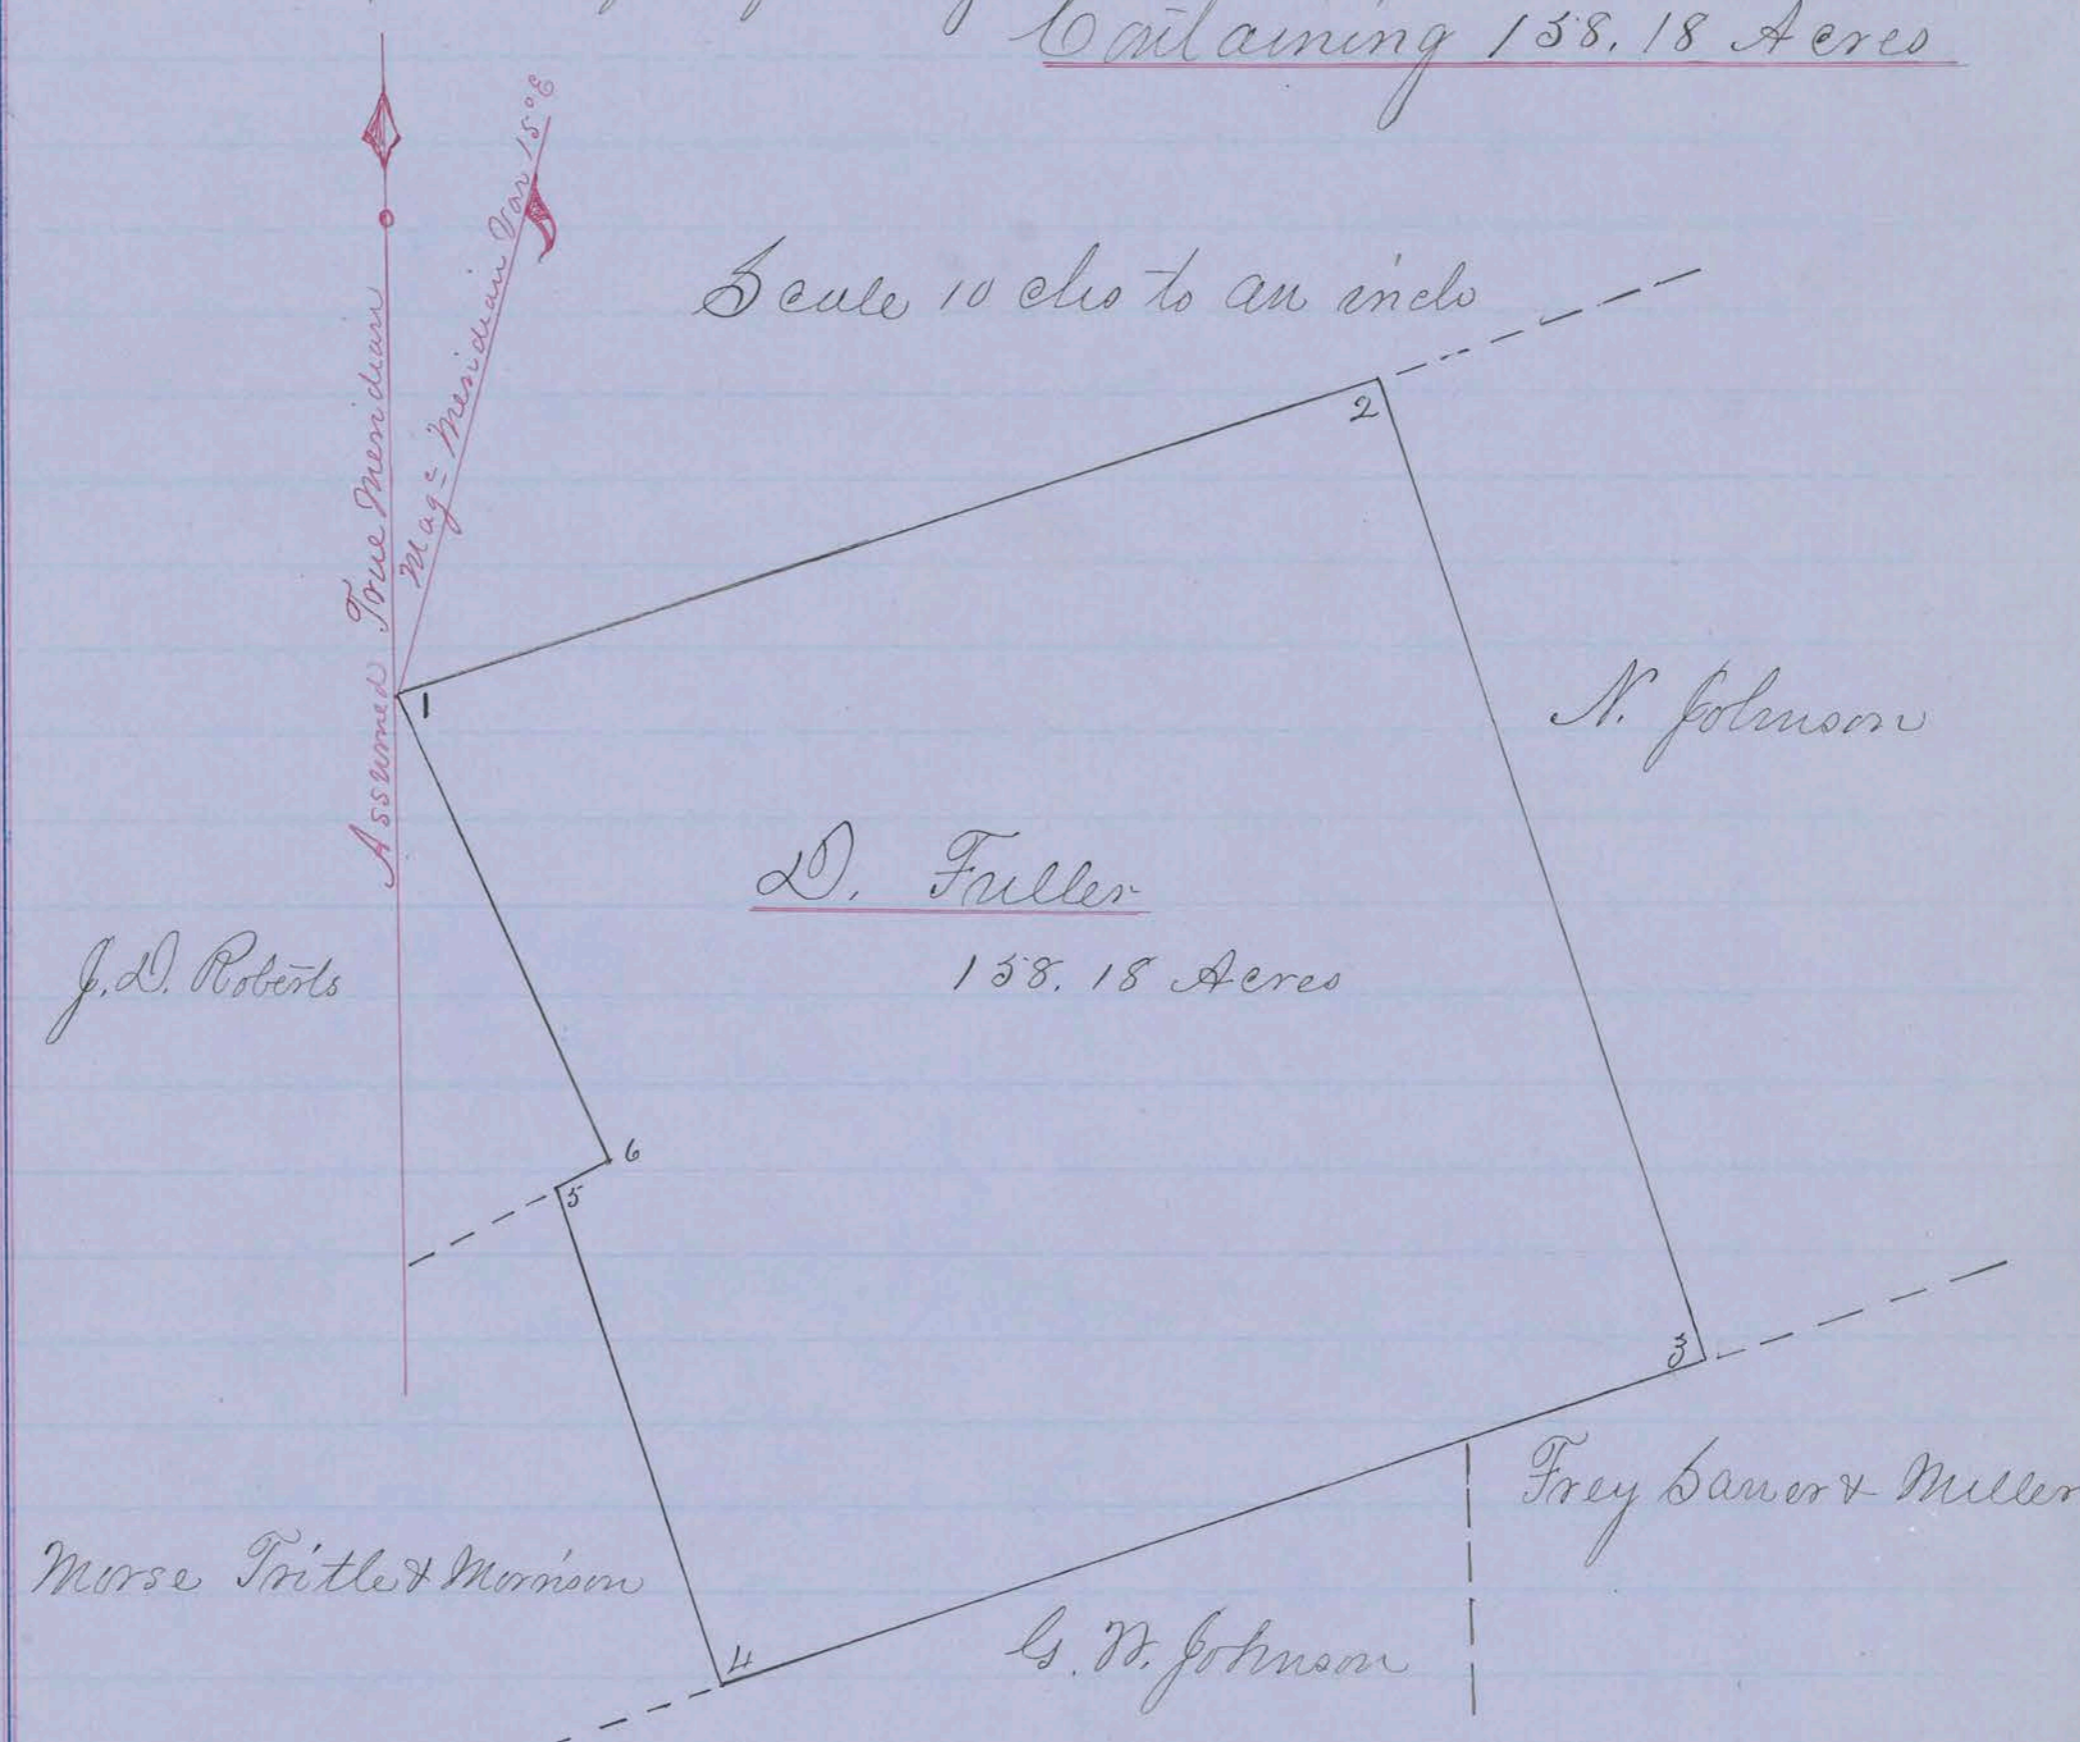 Containing 158.18 Acres
Assumed True Meridian
Mag= Meridian Var 15°E
Scale 10 chs to an inch
2
1
N. Johnson
D. Fuller
158.18 Acres
J. D. Roberts
6
5
3
Frey Sauer & Miller
Morse Tritle & Morrison
4
G. W. Johnson